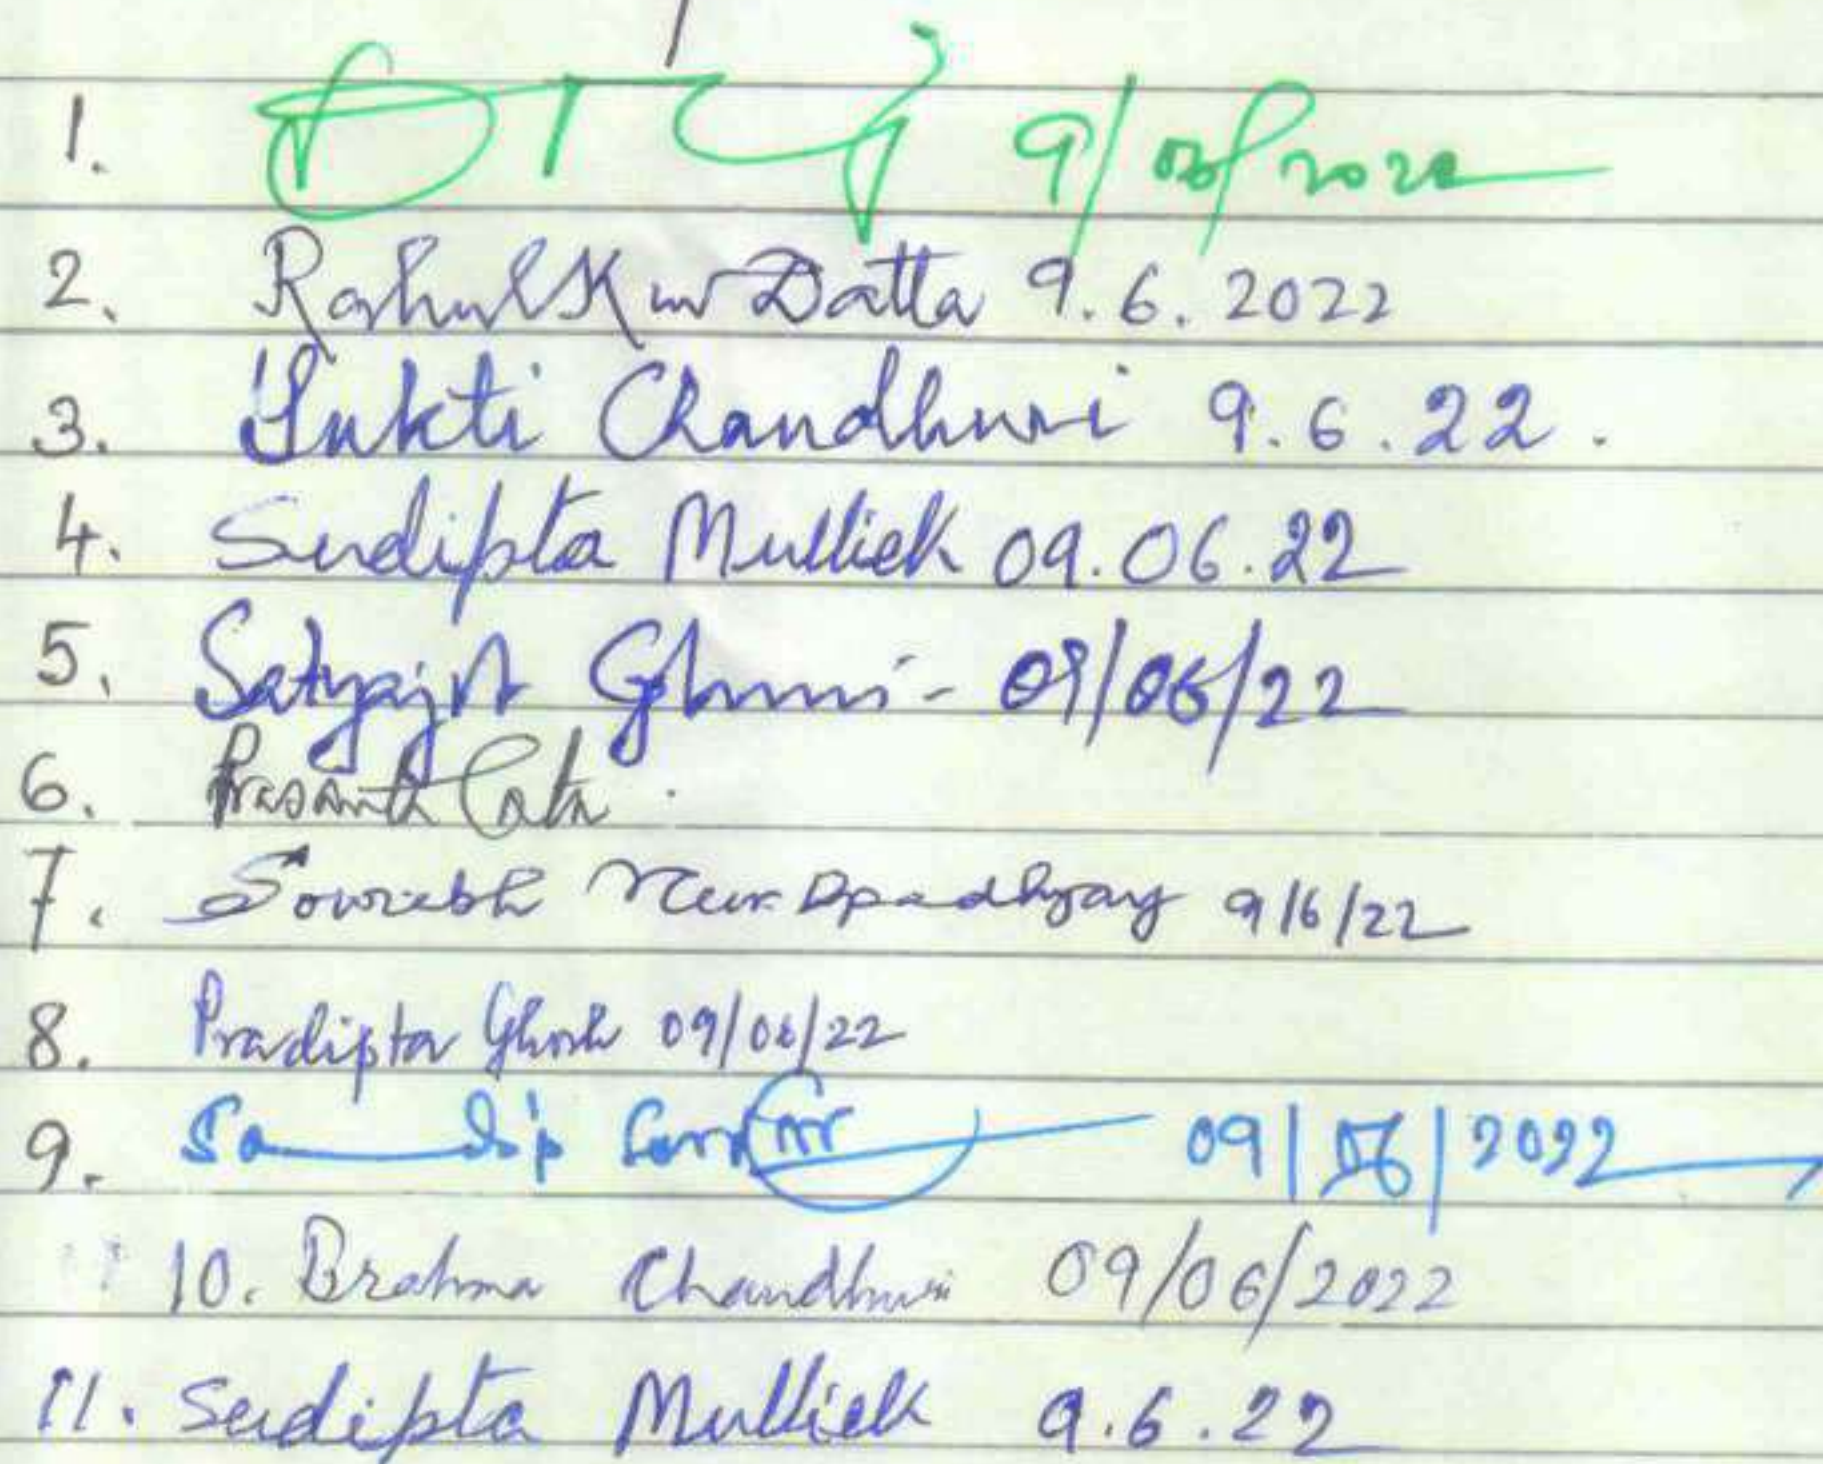 1. 9/06/2022
2. Rahul Kr Datta 9.6.2022
3. Sukti Chaudhuri 9.6.22.
4. Sudipta Mullick 09.06.22
5. Satyajit 09/06/22
6. Prasanta
7. Sourabh 9/6/22
8. Pradipta Ghosh 09/06/22
9. Sandip Sarkar 09/06/2022
10. Brahma Chaudhuri 09/06/2022
11. Sudipta Mullick 9.6.22